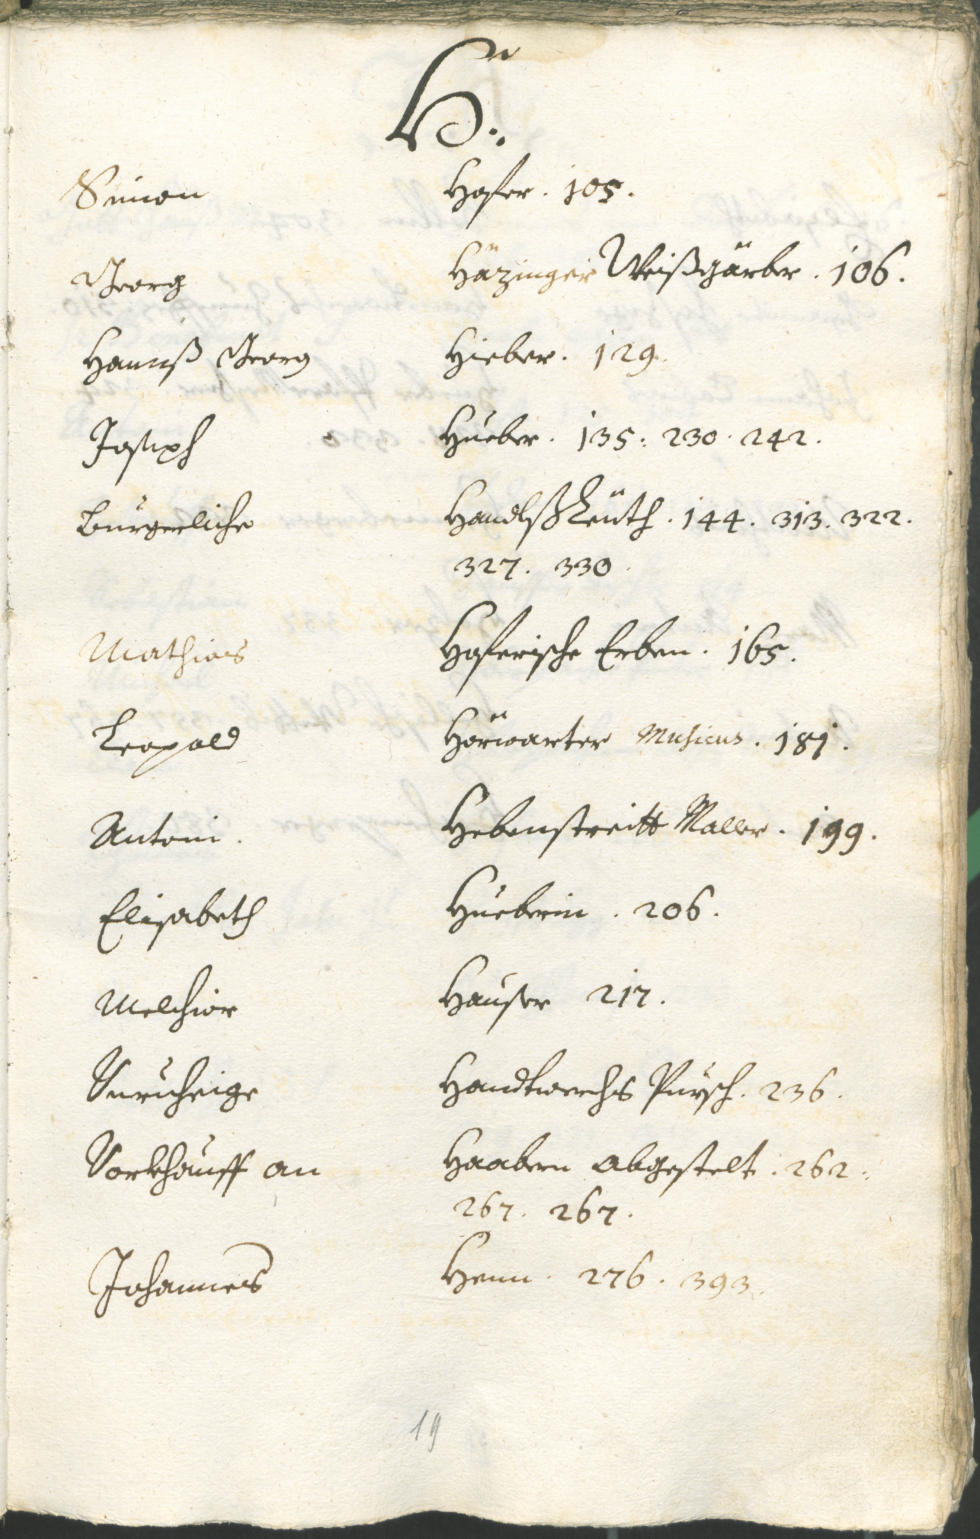 H.
Simon Hofer. 105.
Georg Häzinger Weißgärber. 106.
Hannß Georg Hieber. 129.
Joseph Hueber. 135. 230. 242.
Burgerliche Handlß Leüth. 144. 313. 322.
327. 330.
Mathias Hoferische Erben. 165.
Leopold Hörwarter Musicus. 181.
Antoni. Hebenstreitt Maller. 199.
Elisabeth Hueberin. 206.
Melchior Hauser 217.
Vnruheige Handtwerchs Pursch. 236.
Vorkhauff an Haabern abgestelt. 262.
267. 267.
Johannes Henn. 276. 393.
19